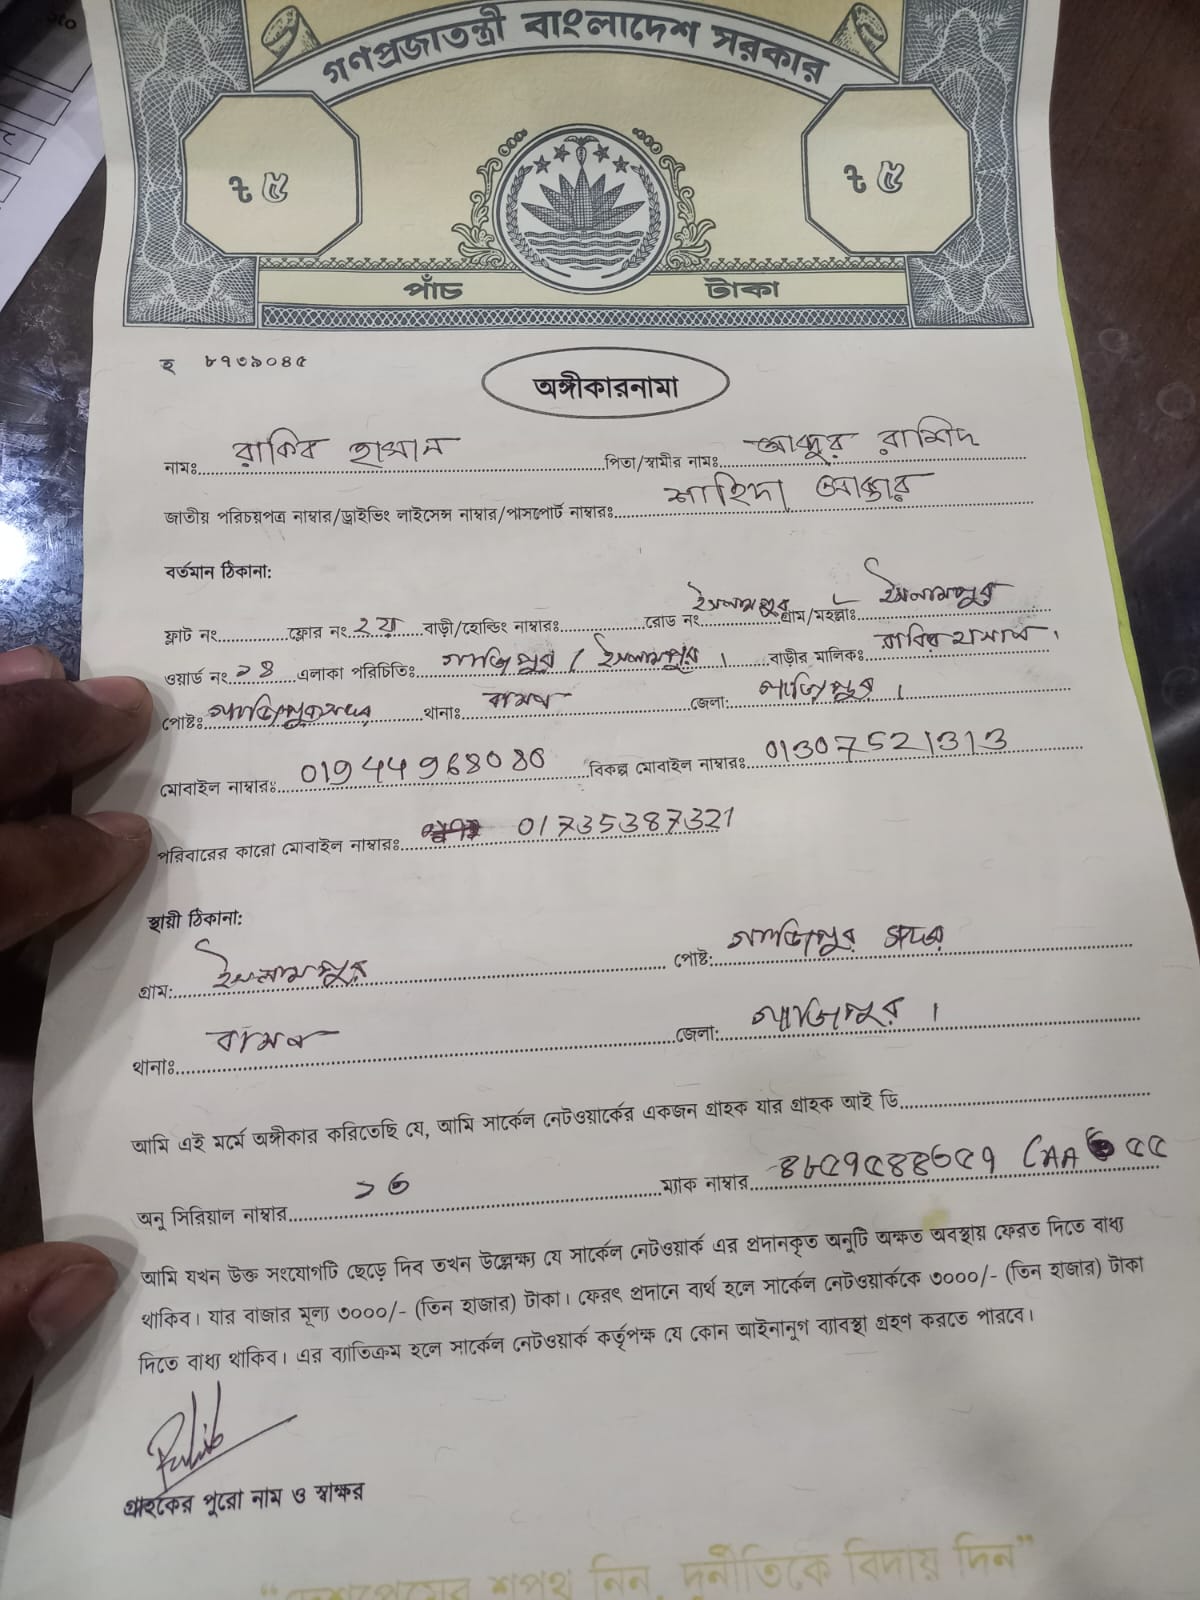 গণপ্রজাতন্ত্রী বাংলাদেশ সরকার
৳ ৫ ৳ ৫
পাঁচ টাকা
হ ৮৭৩৯০৪৫
অঙ্গীকারনামা
নামঃ রাকিব হাসান পিতা/স্বামীর নামঃ আব্দুর রাশিদ
জাতীয় পরিচয়পত্র নাম্বার/ড্রাইভিং লাইসেন্স নাম্বার/পাসপোর্ট নাম্বারঃ শাহিদা আক্তার
বর্তমান ঠিকানা:
ফ্লাট নং ফ্লোর নং ২য় বাড়ী/হোল্ডিং নাম্বারঃ রোড নং ইসলামপুর গ্রাম/মহল্লাঃ ইসলামপুর
ওয়ার্ড নং ১৪ এলাকা পরিচিতিঃ গাজিপুর / ইসলামপুর । বাড়ীর মালিকঃ রাকিব হাসান ।
পোষ্টঃ গাজিপুরসদর থানাঃ বাসন জেলা: গাজিপুর ।
মোবাইল নাম্বারঃ 01944968086 বিকল্প মোবাইল নাম্বারঃ 01307521313
পরিবারের কারো মোবাইল নাম্বারঃ 01735387321
স্থায়ী ঠিকানা:
গ্রাম: ইসলামপুর পোষ্ট: গাজিপুর সদর
থানাঃ বাসন জেলা: গাজিপুর ।
আমি এই মর্মে অঙ্গীকার করিতেছি যে, আমি সার্কেল নেটওয়ার্কের একজন গ্রাহক যার গ্রাহক আই ডি
অনু সিরিয়াল নাম্বার ১৬ ম্যাক নাম্বার
আমি যখন উক্ত সংযোগটি ছেড়ে দিব তখন উল্লেক্ষ্য যে সার্কেল নেটওয়ার্ক এর প্রদানকৃত অনুটি অক্ষত অবস্থায় ফেরত দিতে বাধ্য
থাকিব। যার বাজার মূল্য ৩০০০/- (তিন হাজার) টাকা। ফেরৎ প্রদানে ব্যর্থ হলে সার্কেল নেটওয়ার্ককে ৩০০০/- (তিন হাজার) টাকা
দিতে বাধ্য থাকিব। এর ব্যাতিক্রম হলে সার্কেল নেটওয়ার্ক কর্তৃপক্ষ যে কোন আইনানুগ ব্যাবস্থা গ্রহণ করতে পারবে।
গ্রাহকের পুরো নাম ও স্বাক্ষর
“দেশপ্রেমের শপথ নিন, দুর্নীতিকে বিদায় দিন”